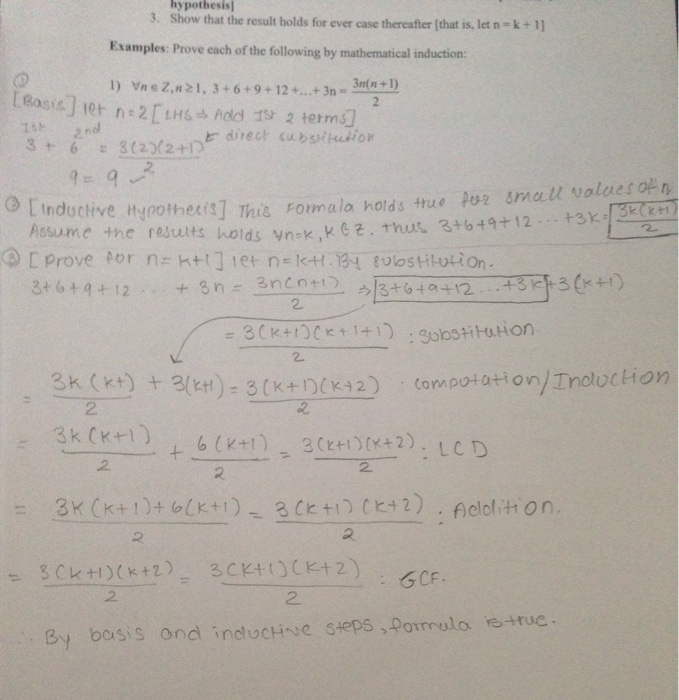 hypothesis]
3. Show that the result holds for ever case thereafter [that is, let n = k + 1]
Examples: Prove each of the following by mathematical induction:
① 1) ∀n ∈ Z, n ≥ 1, 3 + 6 + 9 + 12 + ... + 3n = 3n(n+1)/2
[Basis] let n=2 [LHS ⇒ Add 1st 2 terms]
1st 2nd ← direct substitution
3 + 6 = 3(2)(2+1)/2
9 = 9 ✓
② [Inductive Hypothesis] This formula holds true for small values of n
Assume the results holds ∀n=k, k∈Z. Thus 3+6+9+12 ... +3k = 3k(k+1)/2
③ [prove for n=k+1] let n=k+1. By substitution.
3+6+9+12 ... + 3n = 3n(n+1)/2 ⇒ 3+6+9+12 ... +3k+3(k+1)
= 3(k+1)(k+1+1)/2 : substitution
= 3k(k+)/2 + 3(k+1) = 3(k+1)(k+2)/2 : computation/Induction
= 3k(k+1)/2 + 6(k+1)/2 = 3(k+1)(k+2)/2 : LCD
= 3k(k+1)+6(k+1)/2 = 3(k+1)(k+2)/2 : Addition.
= 3(k+1)(k+2)/2 = 3(k+1)(k+2)/2 : GCF.
∴ By basis and inductive steps, formula is true.